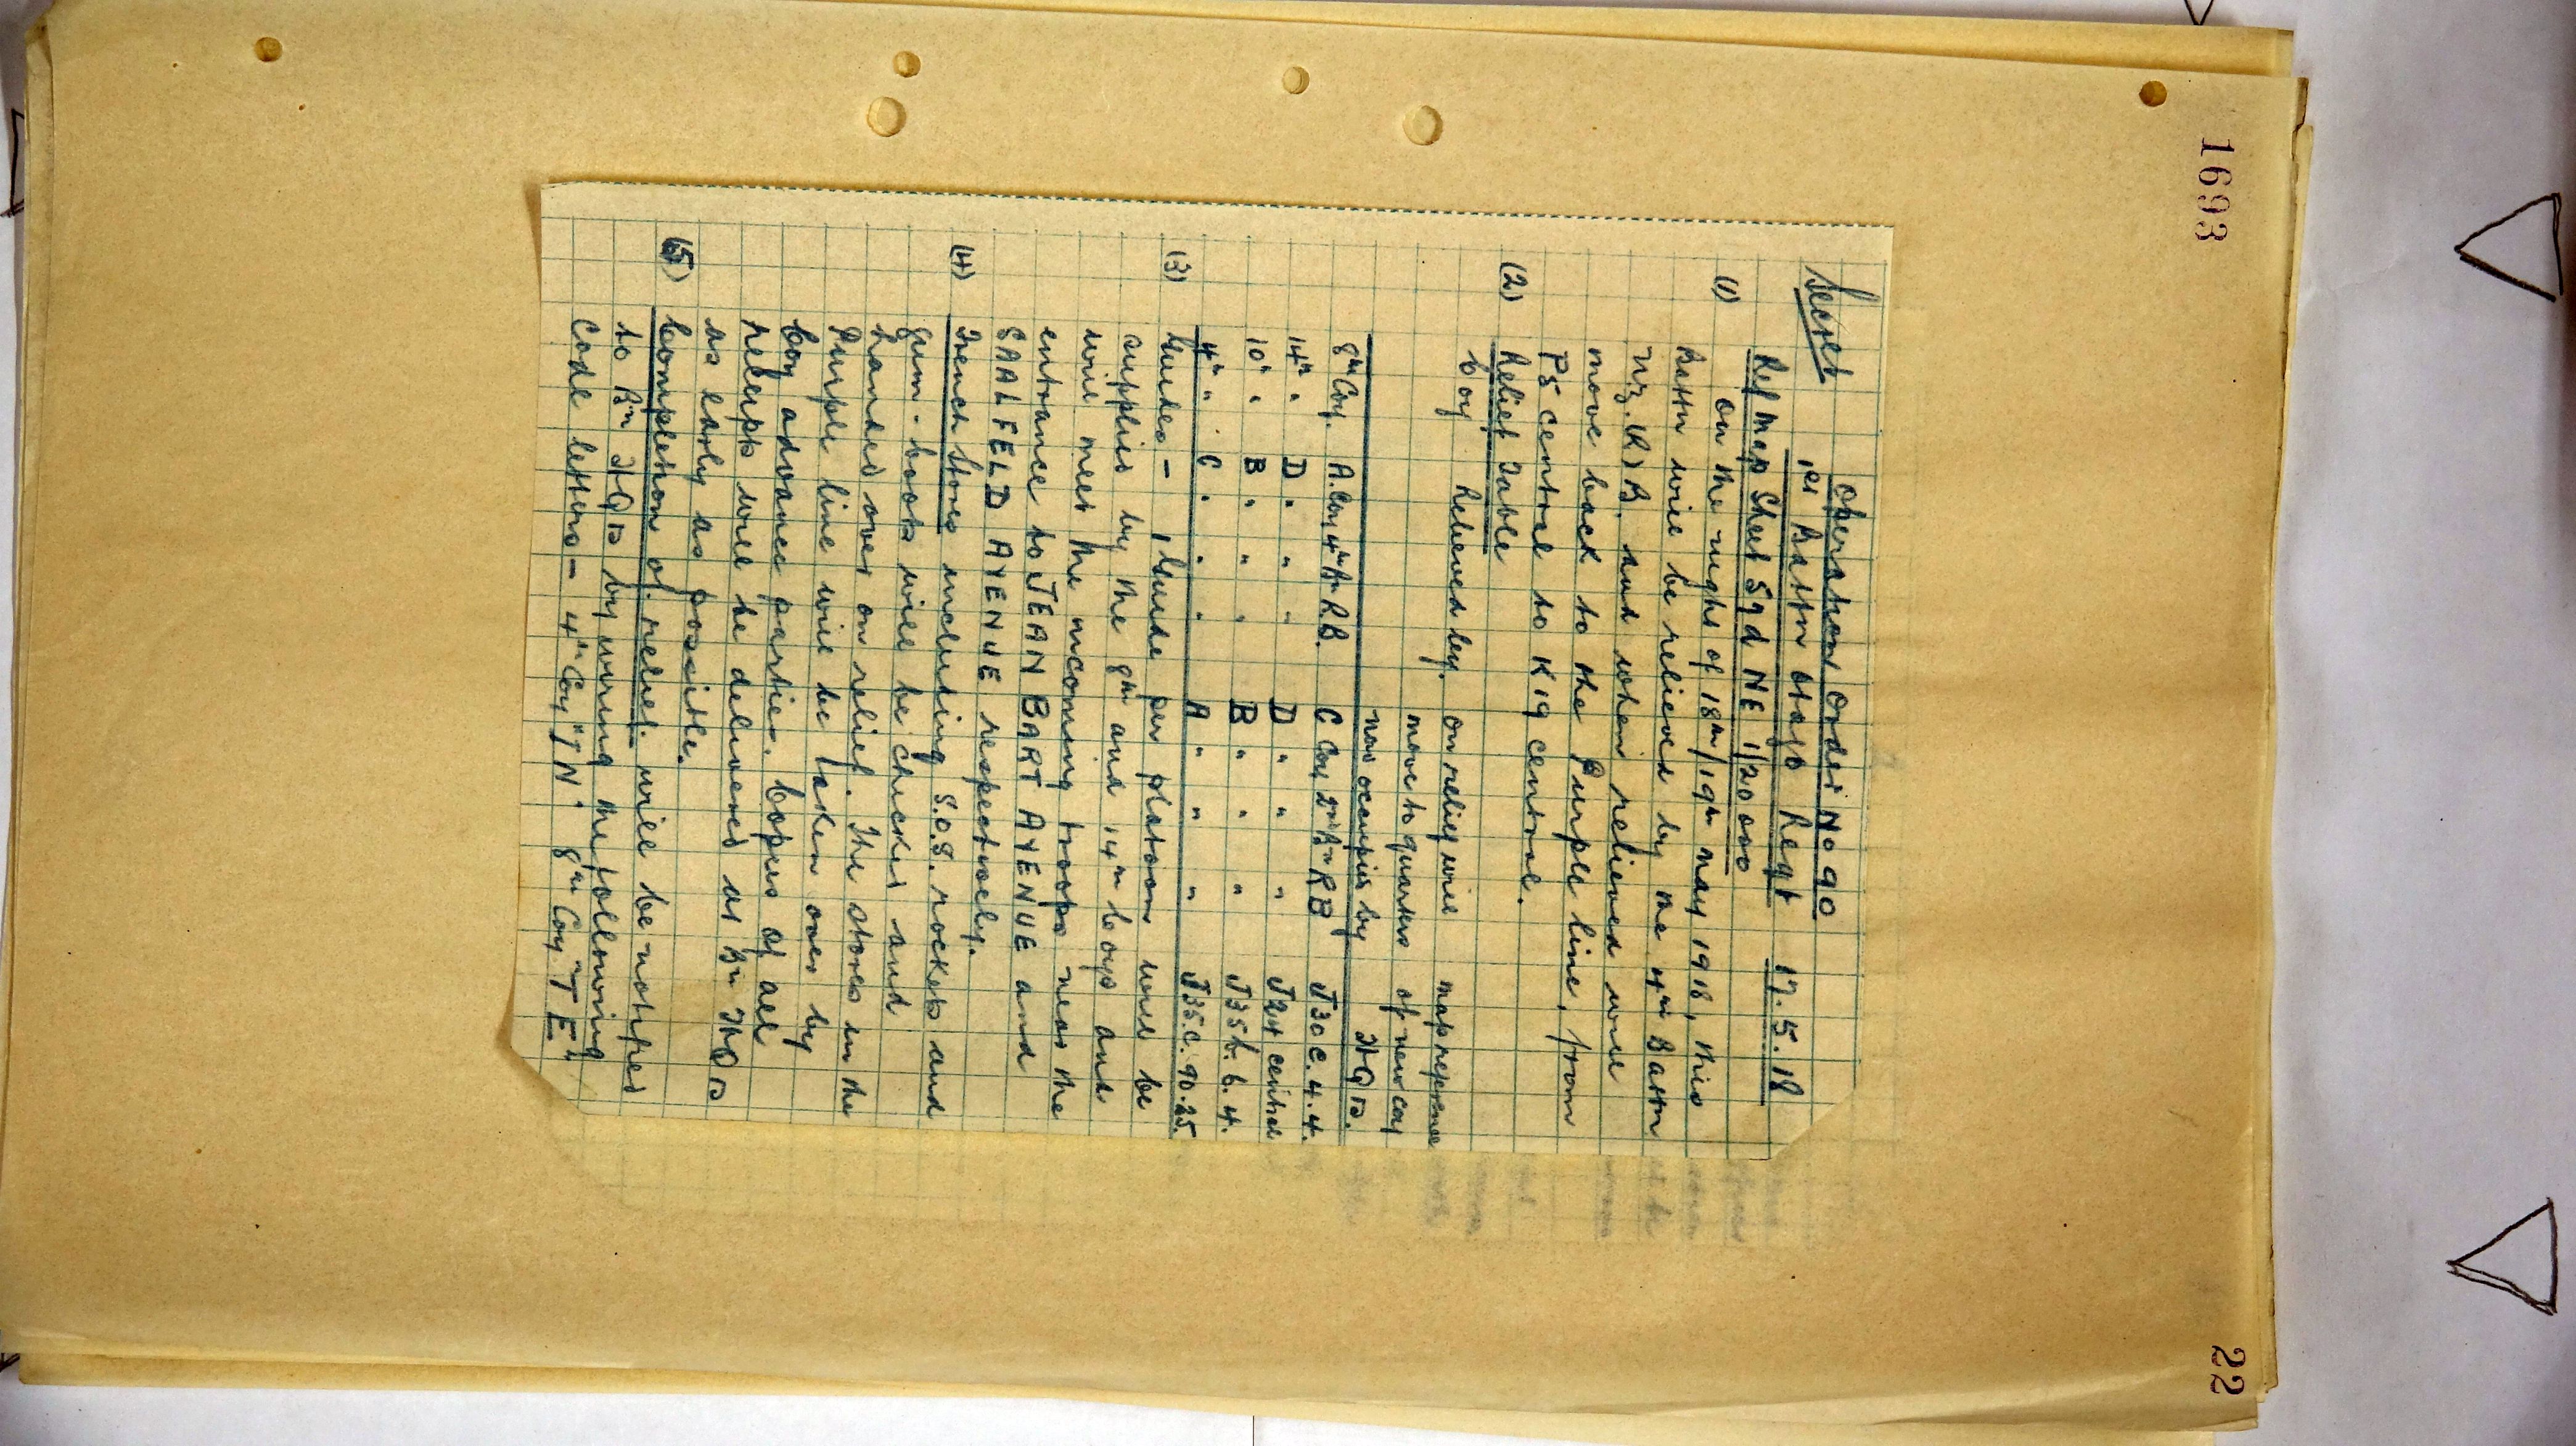 1693
22
Secret
Operation Order No 90
1st Battn Otago Regt 17.5.18
Ref Map Sheet 57d NE 1/20000
(1) On the night of 18th/19th May 1918, this
Battn will be relieved by the 4th Battn
N.Z.(R)B. and when relieved will
move back to the Purple line, from
P5 central to K19 central.
(2) Relief Table
Coy Relieved by. On relief will map reference
move to quarters of new coy
now occupied by HQrs.
8th Coy. A. Coy 4th Bn R.B. C Coy 2nd Bn R B J30 c. 4. 4.
14th " D " " " D " " " J24 central
10th " B " " " B " " " J35 b. 6. 4.
4th " C " " " A " " " J35. c. 90. 25.
(3) Guides - 1 Guide per platoon will be
supplied by the 8th and 14th Coys and
will meet the incoming troops near the
entrance to JEAN BART AVENUE and
SAALFELD AVENUE respectively.
(4) Trench Stores including S.O.S. rockets and
gum-boots will be checked and
handed over on relief. The stores in the
Purple line will be taken over by
Coy advance parties. Copies of all
receipts will be delivered at Bn HQrs
as early as possible.
(5) Completion of relief. will be notified
to Bn HQrs by wiring the following
Code letters - 4th Coy "J N". 8th Coy "T E"